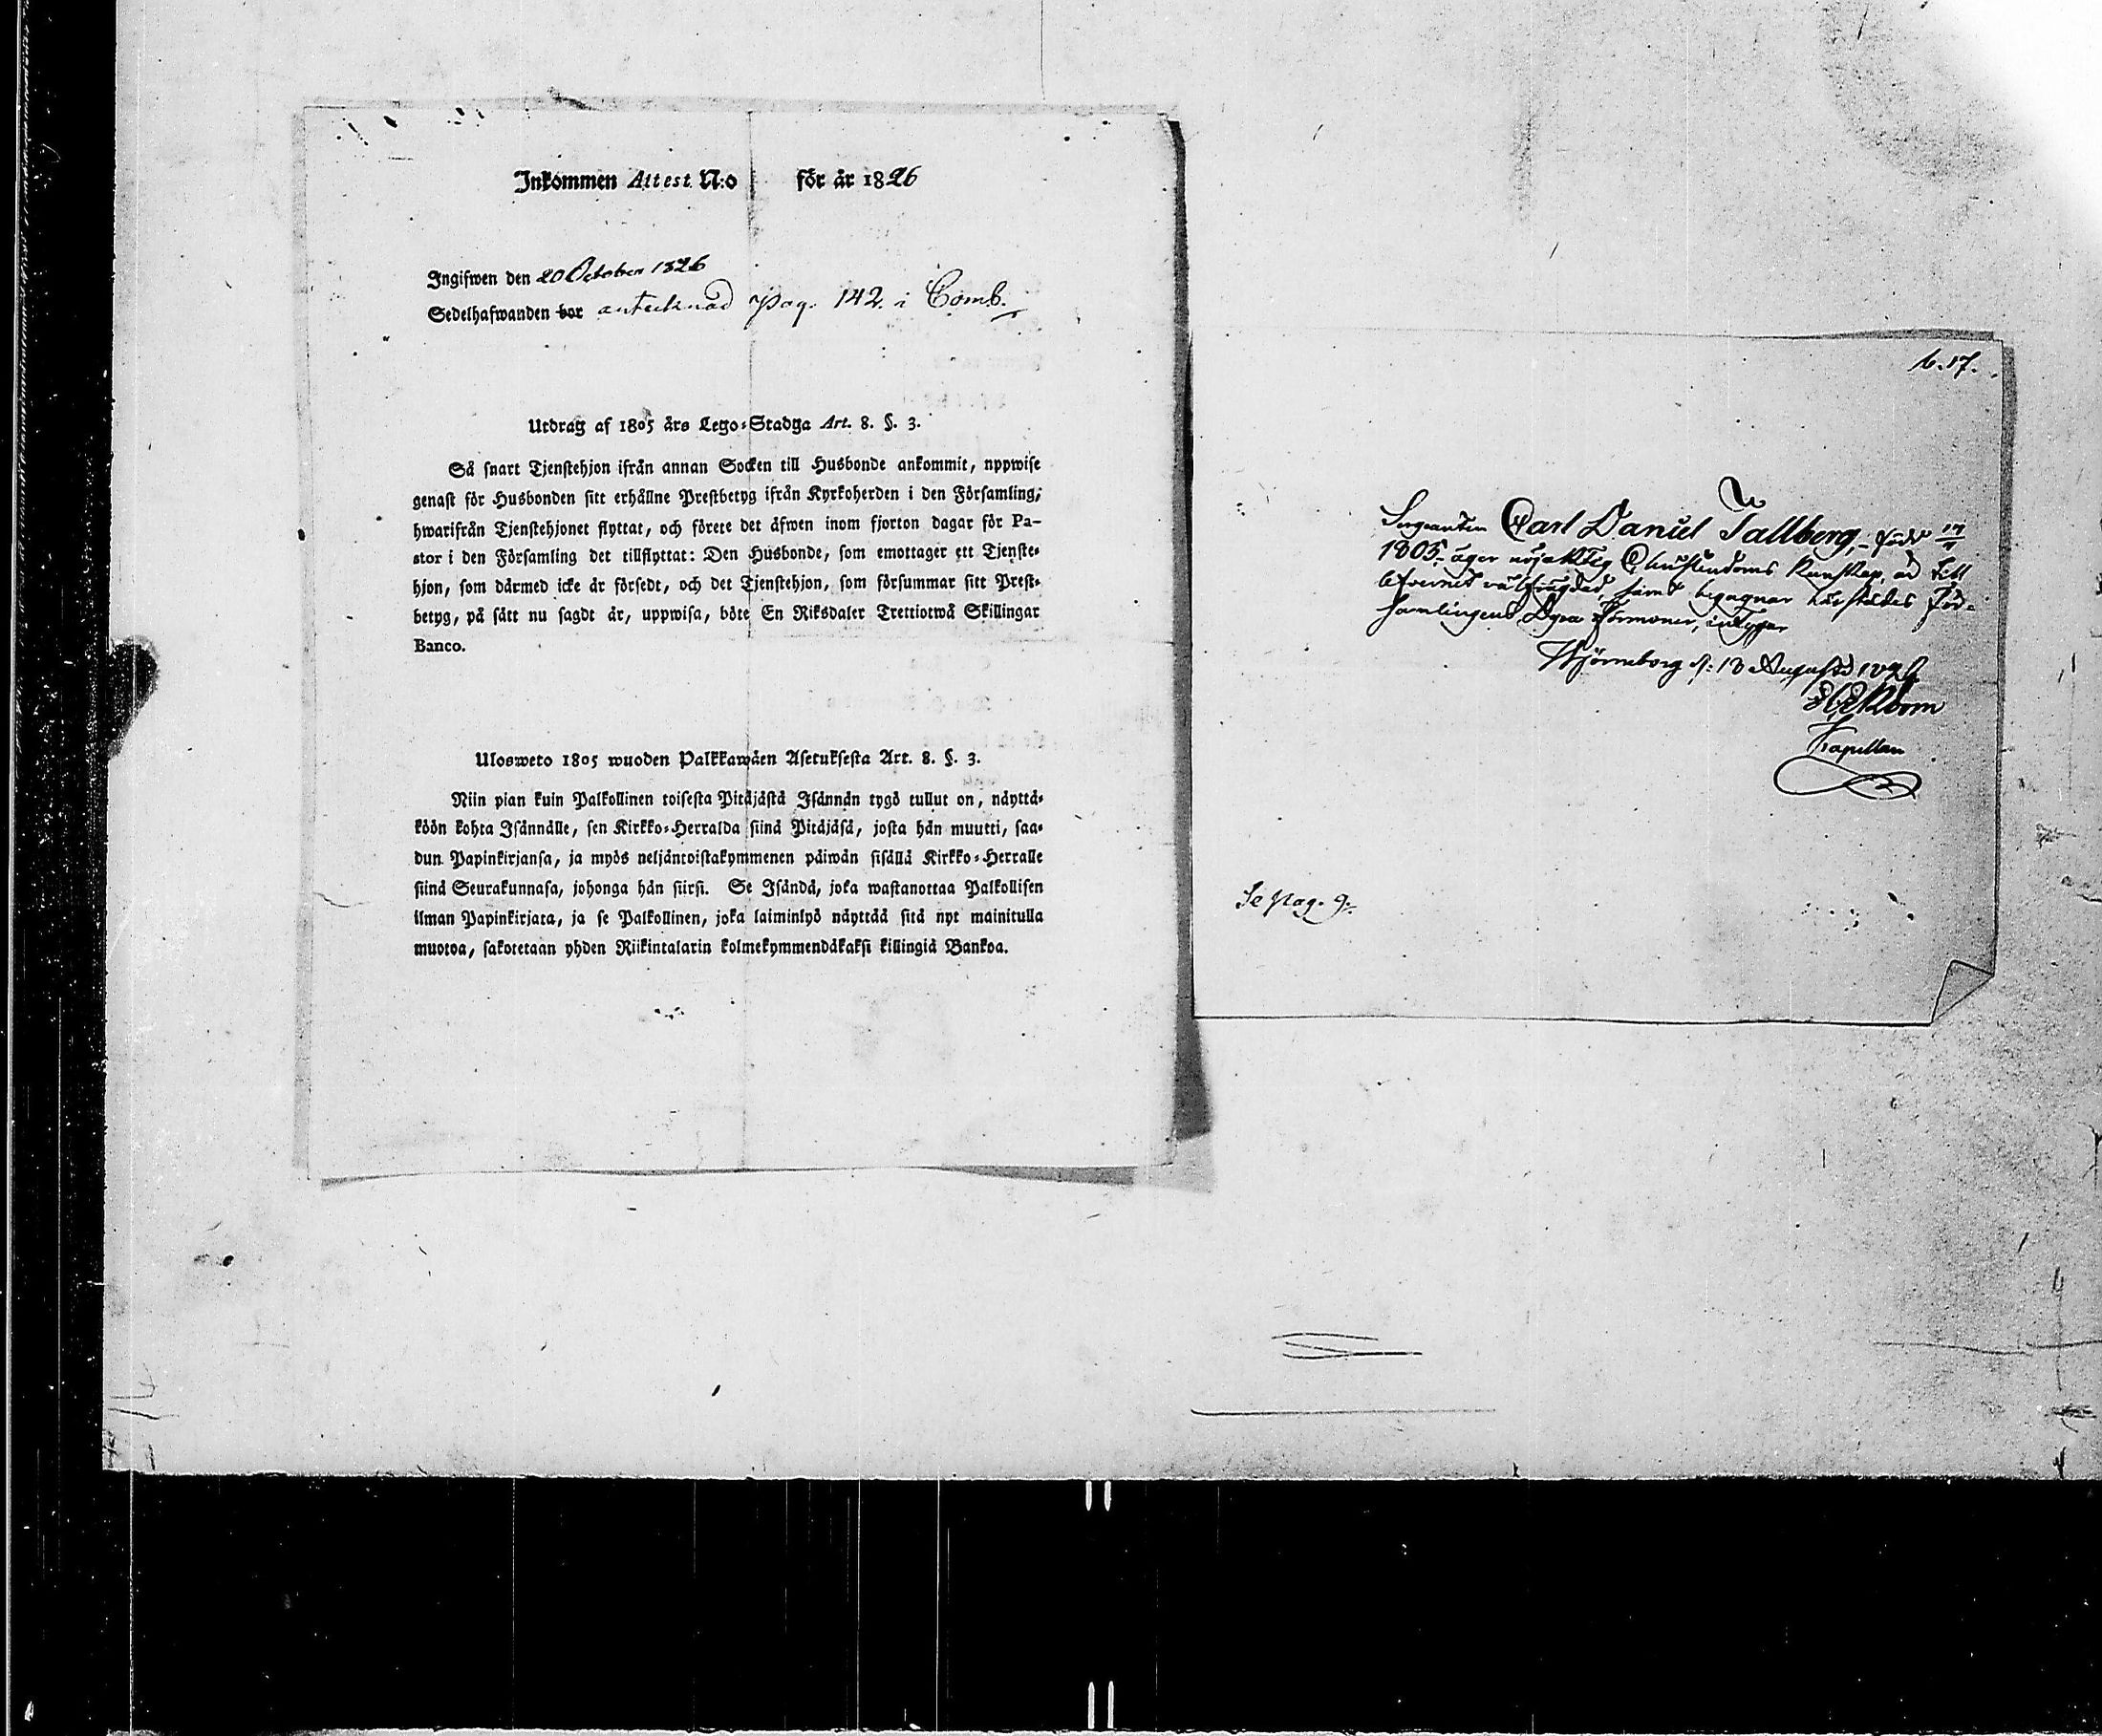 Inkommen Attest N:o för år 1826
Ingifwen den 20 October 1826
Sedelhafwanden bor antecknad pag. 142. i Comb.
Utdrag af 1805 års Lego-Stadga Art. 8. §. 3.
Så snart Tjenstehjon ifrån annan Socken till Husbonde ankommit, nppwise
genast för Husbonden sitt erhållne Prestbetyg ifrån Kyrkoherden i den Församling,
hwarifrån Tjenstehjonet flyttat, och förete det äfwen inom fjorton dagar för Pa-
stor i den Församling det tillflyttat: Den Husbonde, som emottager ett Tjenste-
hjon, som därmed icke är försedt, och det Tjenstehjon, som försummar sitt Prest-
betyg, på sätt nu sagdt är, uppwisa, böte En Riksdaler Trettiotwå Skillingar
Banco.
Ulosweto 1805 wuoden Palkkawäen Asetuksesta Art. 8. §. 3.
Niin pian kuin Palkollinen toisesta Pitäjästä Isännän tygö tullut on, näyttä-
köön kohta Isännälle, sen Kirkko-Herralda siinä Pitäjäsä, josta hän muutti, saa-
dun Papinkirjansa, ja myös neljäntoistakymmenen päiwän sisällä Kirkko-Herralle
siinä Seurakunnasa, johonga hän siirsi. Se Isändä, joka wastanottaa Palkollisen
ilman Papinkirjata, ja se Palkollinen, joka laiminlyö näyttää sitä nyt mainitulla
muotoa, sakotetaan yhden Riikintalarin kolmekymmendäkaksi killingiä Bankoa.
b. 17.
Sergeanten Carl Daniel Tallberg, född
1805. äger nöjaktig Christendoms Kunskap, är till
lefvernet välfrägdad, samt begagnar härstädes För-
samlingens Dyra Förmoner, intygar
Björneborg d: 13 Augusti 1826
Ekblom
Kapellan
Se pag. 9.